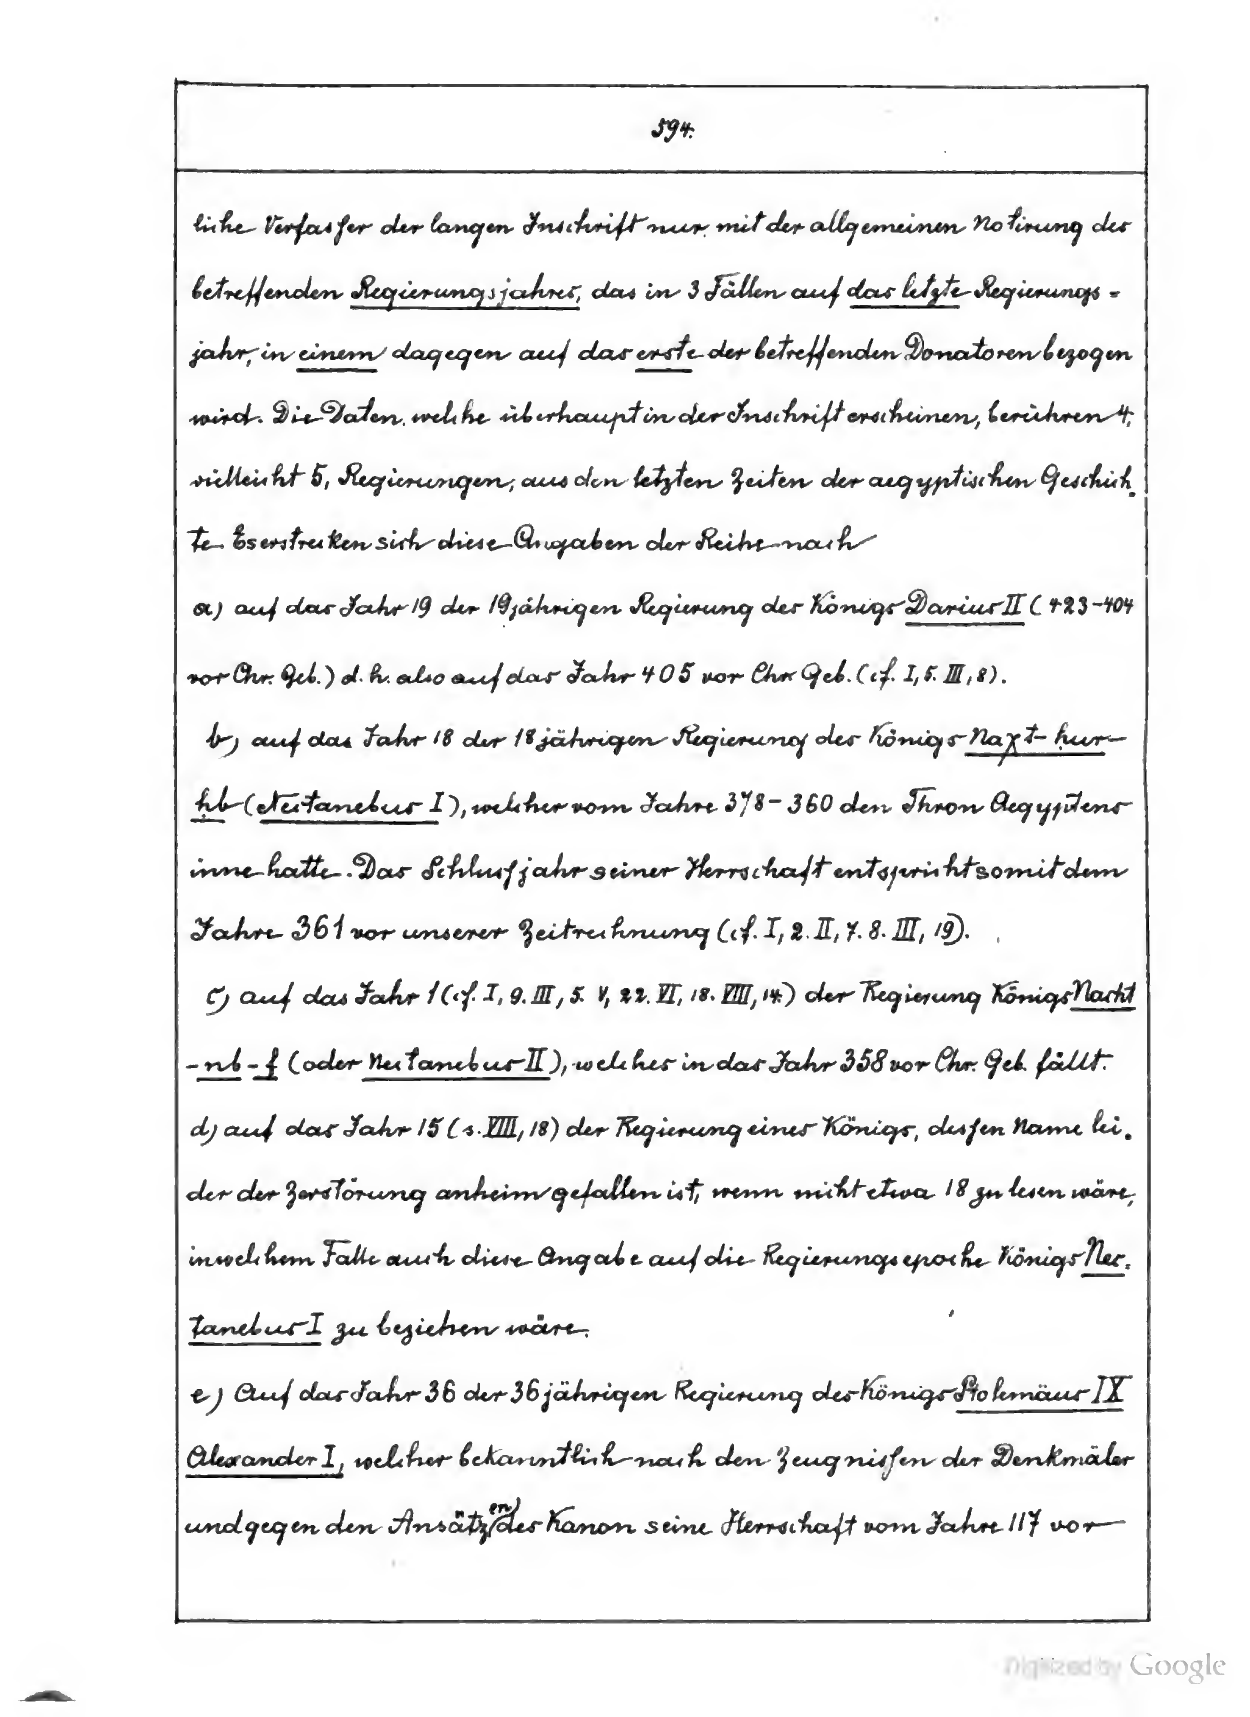 594.
liche Verfasser der langen Inschrift nur mit der allgemeinen Notirung des
betreffenden Regierungsjahres, das in 3 Fällen auf das letzte Regierungs-
jahr, in einem dagegen auf das erste der betreffenden Donatoren bezogen
wird. Die Daten, welche überhaupt in der Inschrift erscheinen, berühren 4,
vielleicht 5, Regierungen, aus den letzten Zeiten der aegyptischen Geschich-
te. Es erstrecken sich diese Angaben der Reihe nach
a) auf das Jahr 19 der 19jährigen Regierung des Königs Darius II (423-404
vor Chr. Geb.) d. h. also auf das Jahr 405 vor Chr. Geb. (cf. I, 5. III, 8).
b) auf das Jahr 18 der 18jährigen Regierung des Königs Naχt-ḥur-
ḥb (Nectanebus I), welcher vom Jahre 378-360 den Thron Aegyptens
inne hatte. Das Schlussjahr seiner Herrschaft entspricht somit dem
Jahre 361 vor unserer Zeitrechnung (cf. I, 2. II, 7. 8. III, 19).
c) auf das Jahr 1 (cf. I, 9. III, 5. V, 22. VI, 18. VIII, 14.) der Regierung Königs Nacht
-nb-f (oder Nectanebus II), welches in das Jahr 358 vor Chr. Geb. fällt.
d) auf das Jahr 15 (s. VIII, 18) der Regierung eines Königs, dessen Name lei-
der der Zerstörung anheim gefallen ist, wenn nicht etwa 18 zu lesen wäre,
in welchem Falle auch diese Angabe auf die Regierungsepoche Königs Nec-
tanebus I zu beziehen wäre.
e) Auf das Jahr 36 der 36jährigen Regierung des Königs Ptolemäus IX
Alexander I, welcher bekanntlich nach den Zeugnissen der Denkmäler
und gegen den Ansätzen des Kanon seine Herrschaft vom Jahre 117 vor
Digitized by Google